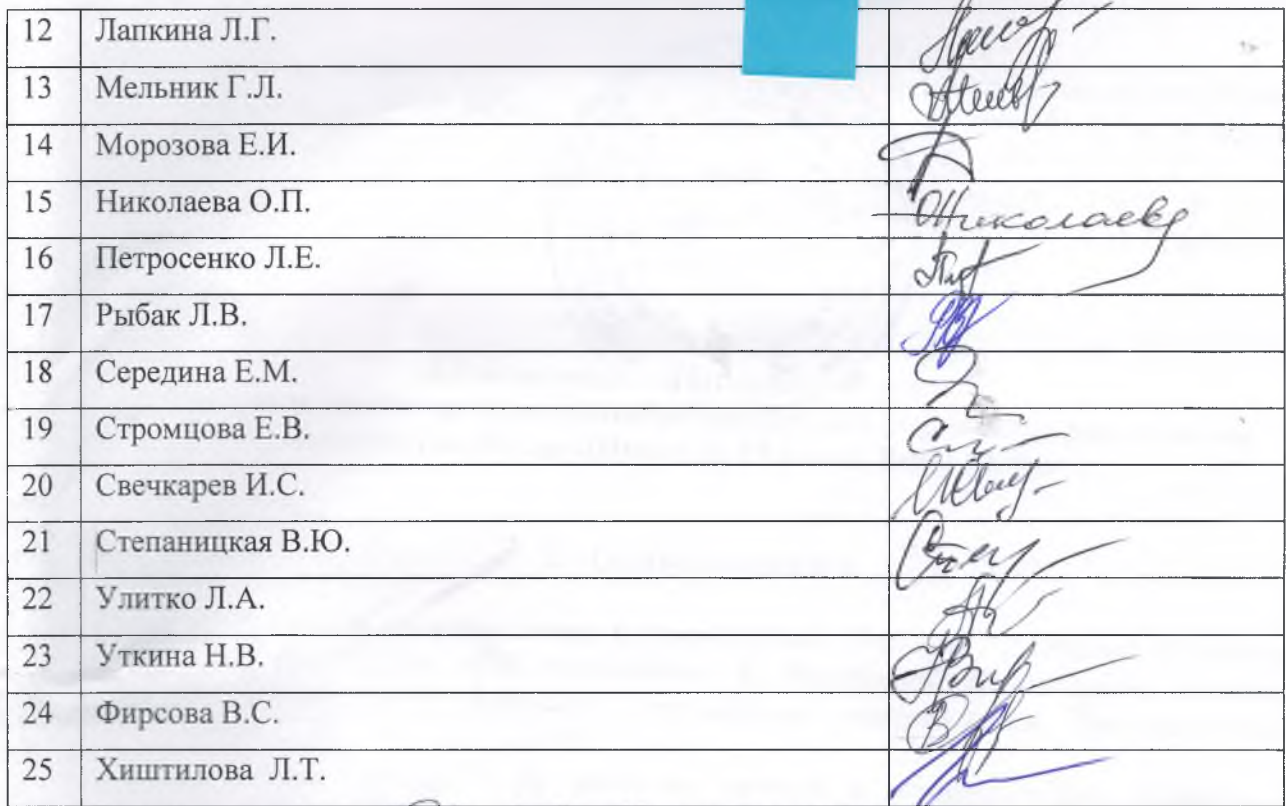 12 Лапкина Л.Г.
13 Мельник Г.Л.
14 Морозова Е.И.
15 Николаева О.П. Николаева
16 Петросенко Л.Е.
17 Рыбак Л.В.
18 Середина Е.М.
19 Стромцова Е.В.
20 Свечкарев И.С.
21 Степаницкая В.Ю.
22 Улитко Л.А.
23 Уткина Н.В.
24 Фирсова В.С.
25 Хиштилова Л.Т.